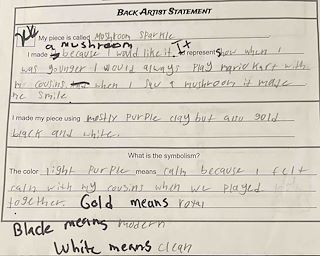 BACK ARTIST STATEMENT
My piece is called Moshroom Sparkle
a mushroom It
I made because I would like it represents how when I
was younger I would always play mario kart with
my cousins when I saw a mushroom it made
me smile
I made my piece using mostly purple clay but also gold
black and white.
What is the symbolism?
The color light Purple means calm because I felt
calm with my cousins when we played
together. Gold means royal
Black means modern
White means clean